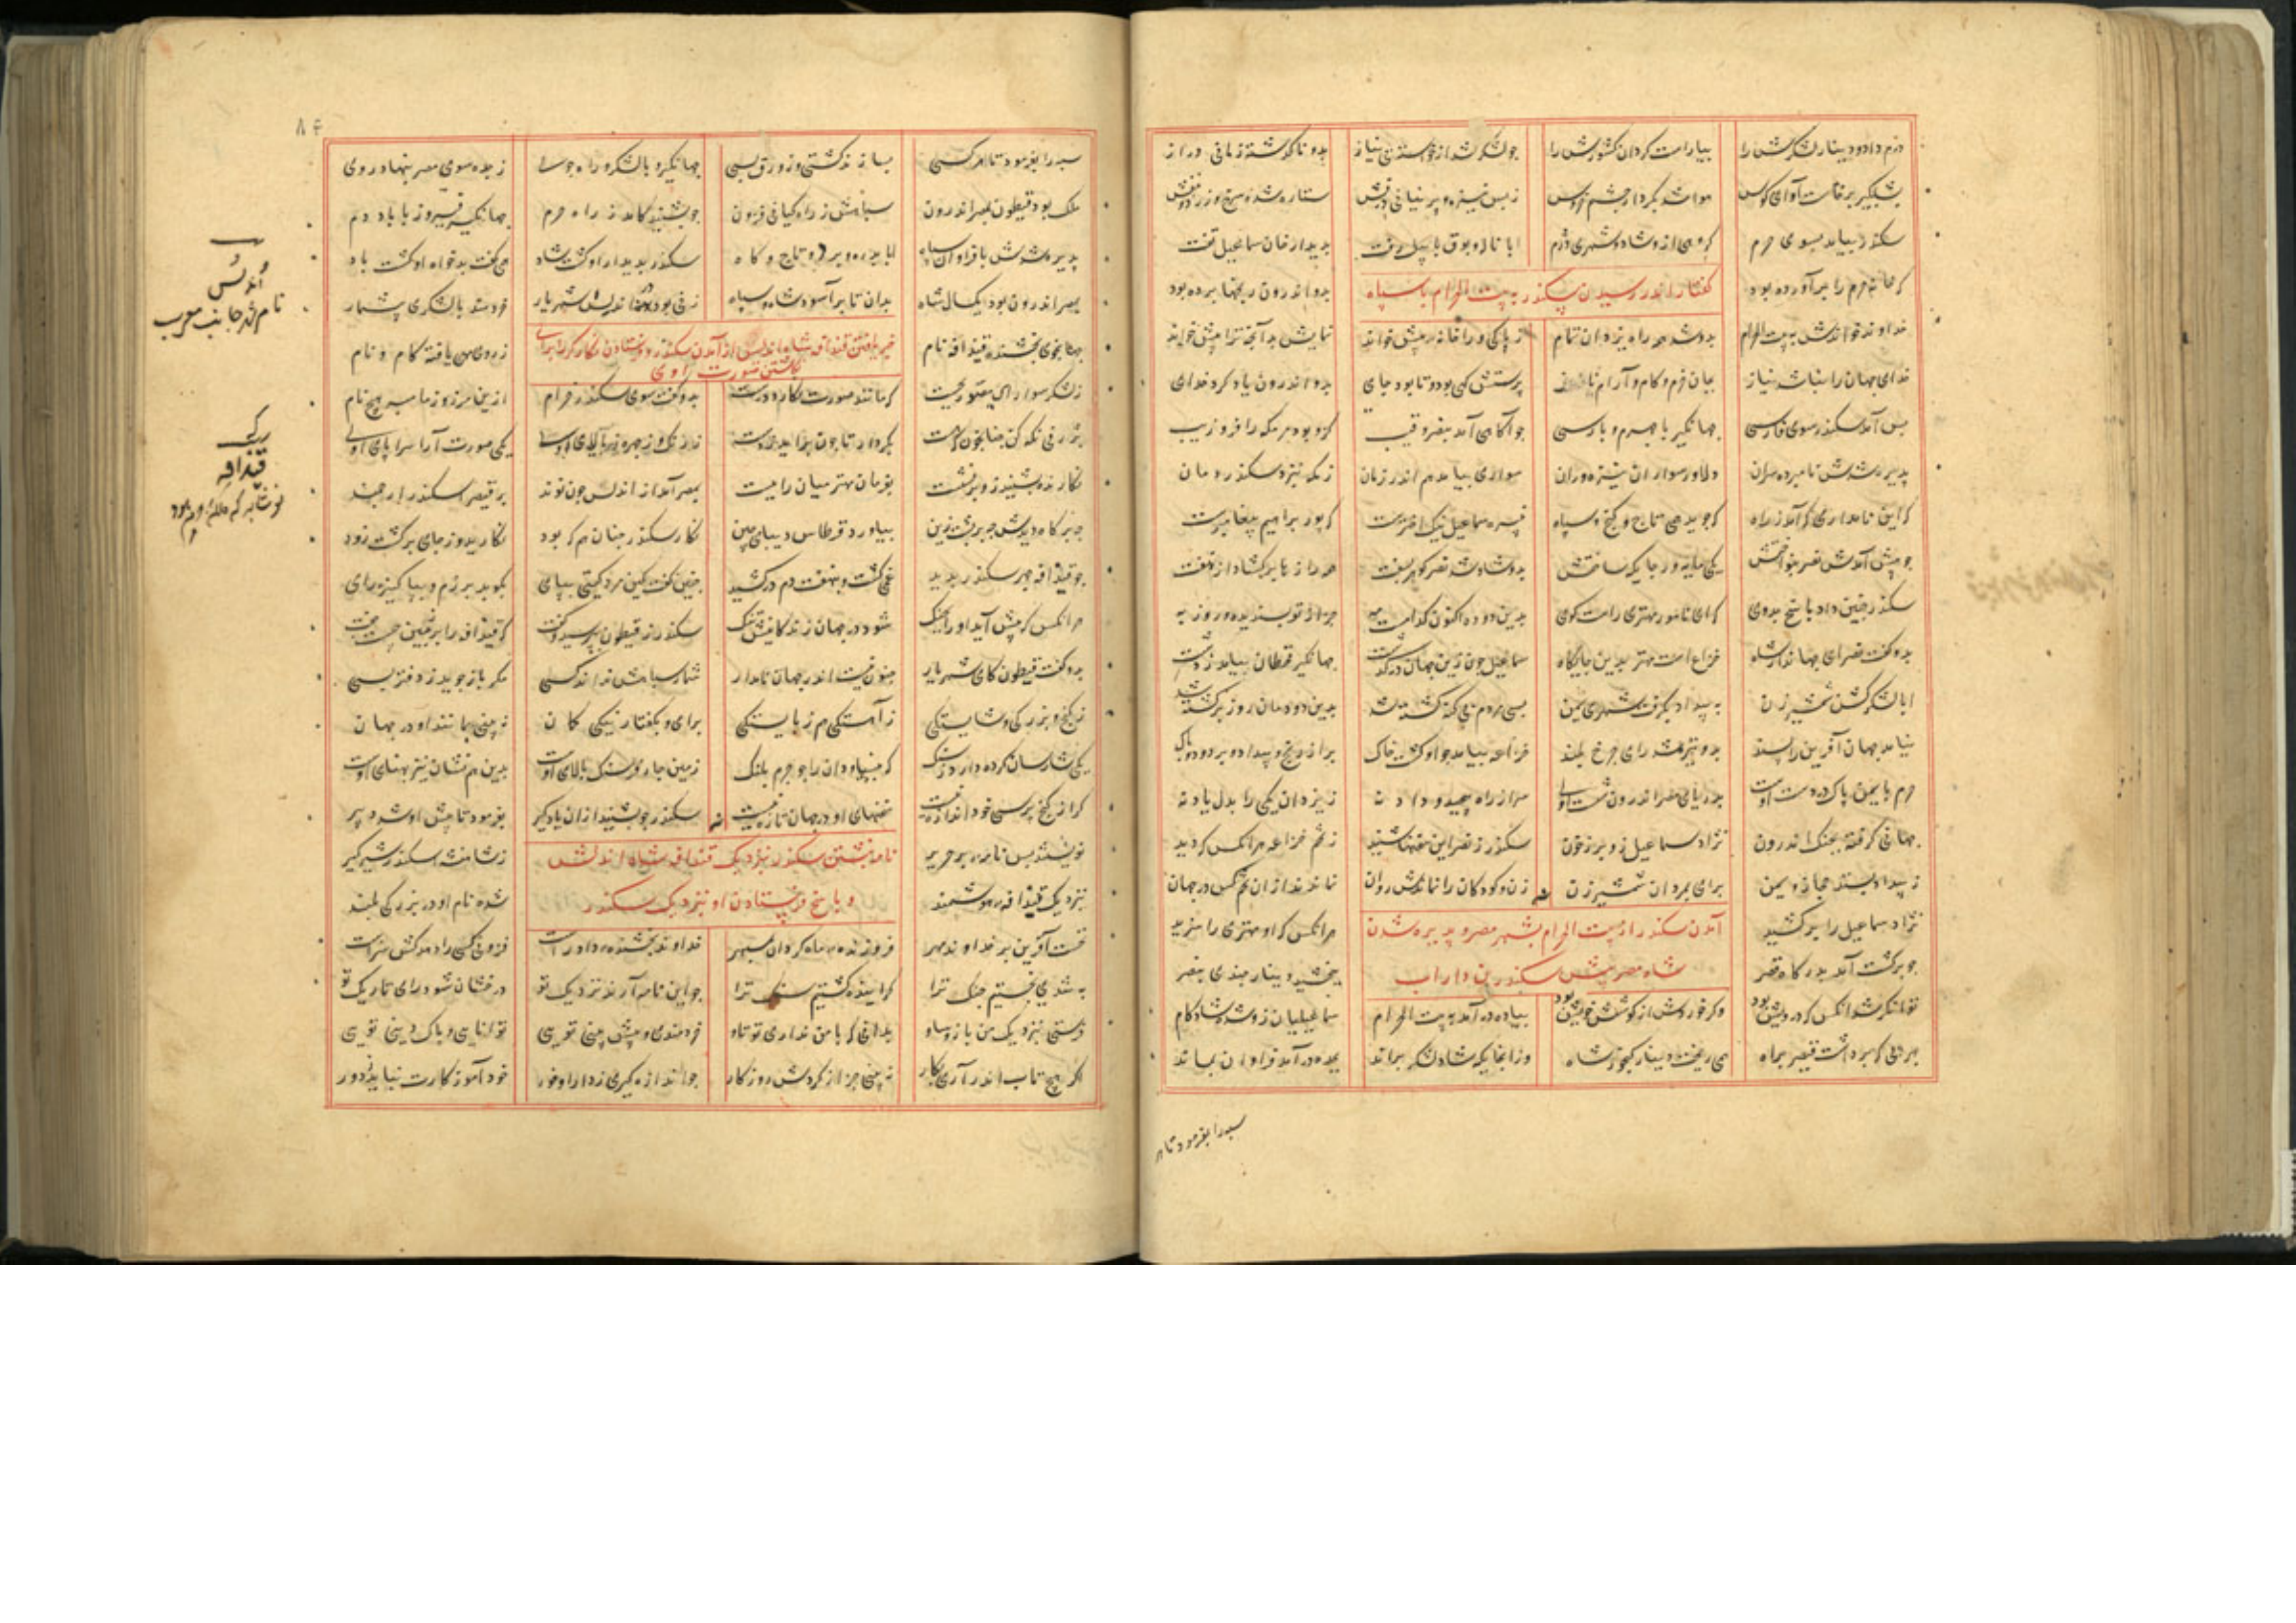 درم داد و دینار لشکرش را بیاراست گردان کشورش را چو لشکر شد از خواسته بی نیاز برو ناگذشته زمانی دراز
بشبگیر برخاست آوای کوس هوا شد بکردار چشم خروس ز بس نیزه و پرنیانی درفش ستاره شده سرخ و زرد و بنفش
سکندر بیامد بسوی حرم گروهی ازو شاد و شهری دژم ابا ناله و بوق با پیل رفت بدیدار خان سماعیل تفت
که خانه حرم را برآورده بود بدو اندرون رنجها برده بود
گفتار اندر رسیدن سکندر به بیت الحرام با سپاه
خداوند خواندش به بیت الحرام بدو شد همه راه یزدان تمام ز پاکی ورا خانه خویش خواند نیایش بدآنجا ترا پیش خواند
خدای جهان را نباشد نیاز بجان خرم و کام و آرام پرستش گهی بود تا بود جای بدو اندرون یاد کرد خدای
پس آمد سکندر سوی قادسی جهانگیر با جهرم و پارسی چو آگاهی آمد بنصر قتیب کزو بود مر مکه را فر و زیب
پذیره شدش با نبرده سران دلاور سواران نیزه وران سواری بیامد هم اندر زمان ز مکه بنزد سکندر دمان
که این نامداری که آمد ز راه نجوید همی تاج و گنج و سپاه نبیره سماعیل نیک اخترست که پور براهیم پیغامبرست
چو پیش آمدش نصر بنواختش یکی مایه ور جایگه ساختش بدو شاد شد نصر گوهر بگفت همه راز با بر گشاد از نهفت
سکندر چنین داد پاسخ بدوی که ای نامور مهتر راست گوی بدین دوده اکنون کدامست مه جز از تو پسندیده و روزبه
بدو گفت نصر ای جهاندار شاه خزاعست مهتر بدین جایگاه سماعیل چون زین جهان درگذشت جهانگیر قحطان بیامد ز دشت
ابا لشکر گشن شمشیرزن به بیداد بگرفت شهر یمن بسی مردم بی گنه کشته شد بدین دودمان روز برگشته شد
نیامد جهان آفرین را پسند بدو تیره شد رای چرخ بلند خزاعه بیامد چو او گشت خاک بر از رنج و بیداد بدرود پاک
حرم تا یمن پاک در دست اوست بدریای مصر اندرون شست اوست سر از راه پیچیده و داد نه ز یزدان یکی را بدل یاد نه
جهانی گرفته بچنگ اندرون نژاد سماعیل زو پر ز خون سکندر ز نصر این سخنها شنید ز تخم خزاعه هر آنکس که دید
ز بیداد بستد حجاز و یمن برای و بمردان شمشیرزن زن و کودکان را نماندش روان نماندند از آن تخم کس در جهان
نژاد سماعیل را برکشید هر آنکس که او مهتری را سزید
آمدن سکندر از بیت الحرام بشهر مصر و پذیره شدن
شاه مصر پیش سکندر بن داراب
چو برگشت آمد بدرگاه قصر ببخشید دینار چندی بنصر
توانگر شد آنکس که درویش بود وگر خوردش از کوشش خویش بود پیاده درآمد به بیت الحرام سماعیلیان زو شده شادکام
بهر پی که برداشت قیصر براه همی ریخت دینار گنجور شاه وز آنجایگه شاد لشکر براند بجده درآمد فراوان نماند
سپه را بفرمود تا هر
۸۴
سپه را بفرمود تا هر کسی بسازند کشتی و زورق بسی جهانگیر با لشکر راه جوی ز جده سوی مصر بنهاد روی
ملک بود قیطون بمصر اندرون سپاهش ز راه گمانی فزون چو بشنید کامد ز راه حرم جهانگیر فیروز با باد دم
پذیره شدش با فراوان سپاه ابا بدره و برده و تاج و گاه سکندر بدیدار او گشت شاد همی گفت بدخواه او گشت باد
بمصر اندرون بود یکسال شاه بدان تا برآسود شاه و سپاه زنی بود در اندلس شهریار خردمند با لشکری بیشمار
جهانجوی بخشنده قیدافه نام ز روی بهی یافته کام و نام
خبر یافتن قیدافه شاه اندلس از آمدن سکندر و فرستادن نگارگر را برای
نگاشتن صورت او
ز لشکر سواری مصور بجست که مانند صورت نگارد درست بدو گفت سوی سکندر خرام ازین مرز و از ما مبر هیچ نام
بژرفی نگه کن چنان چون که هست بکردار تا چون برآید ز دست ز رنگ و ز چهره ز بالای او یکی صورت آرا سراپای او
نگارنده بشنید و زو برنشست بفرمان مهتر میان را ببست بمصر آمد از اندلس چون نوند بر قیصر اسکندر ارجمند
چه برگاه دیدش چه بر پشت زین بیاورد قرطاس و دیبای چین نگار سکندر چنان هم که بود نگارید و ز جای برگشت زود
چو قیدافه چهر سکندر بدید غمی گشت و بنهفت دم درکشید چنین گفت کین مرد گیتی بپای بکوبد برزم و بپاکیزه رای
هر آنکس که پیش آید او را بجنگ شود در جهان زندگانیش تنگ سکندر ز قیطون بپرسید و گفت که قیدافه را بر زمین چیست جفت
بدو گفت قیطون که ای شهریار چنو نیست اندر جهان نامدار شمار سپاهش نداند کسی مگر باز جوید ز دفتر بسی
ز گنج و بزرگی و شایستگی ز آهستگی هم ز بایستگی برای و بگفتار نیکی گمان نه بینی همانند او در جهان
یکی شارسان کرده دارد ز سنگ که نبساود آن را چو چرم پلنگ زمین چار فرسنگ بالای اوست بدین هم نشان نیز پهنای اوست
گر از گنج پرسی خود اندازه نیست سخنهای او در جهان تازه نیست سکندر چو بشنید از آن یادگیر بفرمود تا پیش او شد دبیر
نویسند پس نامه بر حریر ز شاهنشه اسکندر شیرگیر
نامه نبشتن سکندر نزدیک قیدافه شاه اندلس
و پاسخ فرستادن او نزدیک سکندر
بنزدیک قیدافه هوشمند شده نام او در بزرگی بلند
نخست آفرین بر خداوند مهر فروزنده ماه گردان سپهر خداوند بخشنده داد راست فزونی کسی را دهد کش سزاست
به تندی نجستیم جنگ ترا گراینده گشتیم سنگ ترا چو این نامه آرند نزدیک تو درخشان شود رای تاریک تو
فرستی بنزدیک من باژ و ساو بدانی که با من نداری تو تاو خردمندی و پیش بینی تویی توانایی و پاک دینی تویی
اگر هیچ تاب اندر آری بکار نه بینی جز از گردش روزگار چو اندازه گیری ز دارا و فور خود آموزگارت نباید ز دور
اندلس
نام شهر جانب مغرب
قیدافه